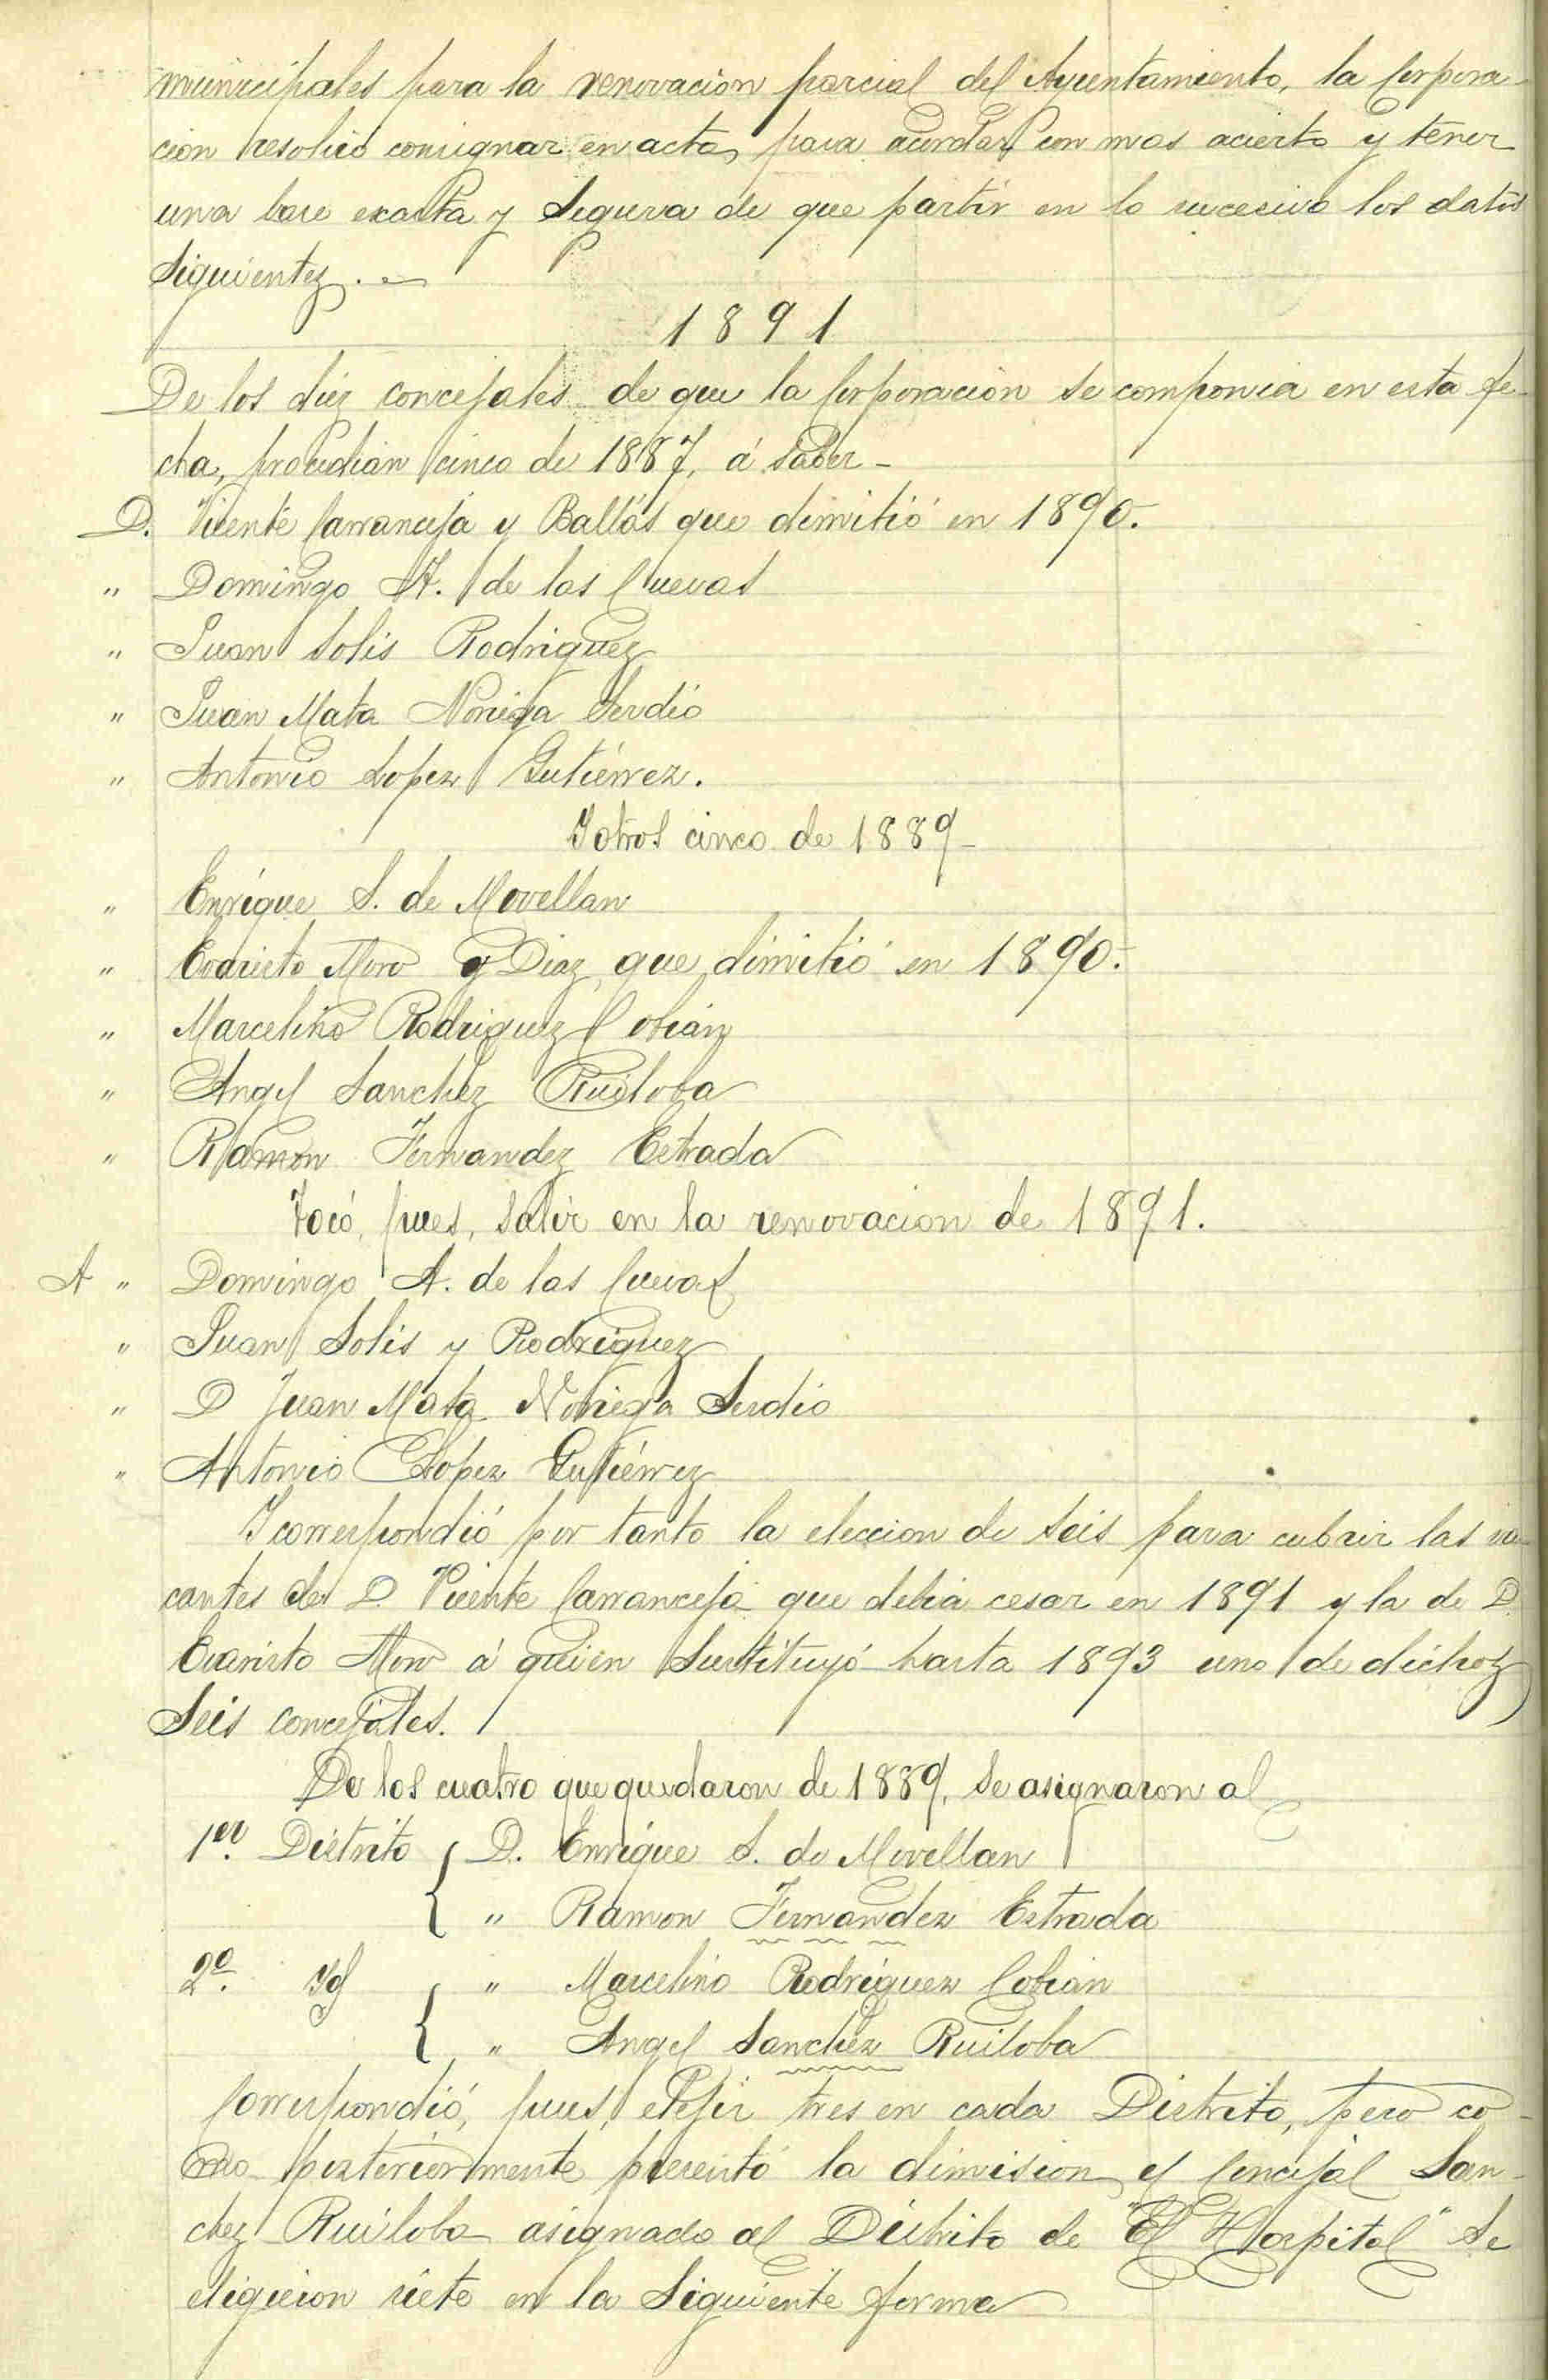 municipales para la renovación parcial del Ayuntamiento, la Corpora-
ción resolvió consignar en acta, para acordar con mas acierto y tener
una base exacta y segura de que partir en lo sucesivo los datos
siguientes. —
1891
De los diez concejales de que la Corporación se componia en esta fe-
cha, procedian cinco de 1887, á saber -
D. Vicente Carranceja y Ballás que dimitió en 1890.
" Domingo A. de las Cuevas
" Juan Solis Rodriguez
" Juan Mata Noriega Serdio
" Antonio Lopez Gutiérrez.
Y otros cinco de 1889 -
" Enrique S. de Movellan
" Evaristo Moro y Diaz, que dimitió en 1890.
" Marcelino Rodriguez Cobián
" Angel Sanchez Ruiloba
" Ramon Fernandez Estrada
Tocó, pues, salir en la renovacion de 1891.
A " Domingo A. de las Cuevas
" Juan Solis y Rodriguez
" D Juan Mata Noriega Serdio
" Antonio Lopez Gutiérrez
Y correspondió por tanto la eleccion de seis para cubrir las va-
cantes de D. Vicente Carranceja que debia cesar en 1891 y la de D.
Evaristo Moro á quien sustituyó hasta 1893 uno de dichos
seis concejales.
De los cuatro que quedaron de 1889, se asignaron al
1er. Distrito { D. Enrique S. de Movellan
" Ramon Fernandez Estrada
2º. Yd { " Marcelino Rodriguez Cobian
" Angel Sanchez Ruiloba
Correspondió, pues, elejir tres en cada Distrito, pero co-
mo posteriormente presentó la dimision el Concejal San-
chez Ruiloba asignado al Distrito de "El Hospital" se
eligieron siete en la siguiente forma